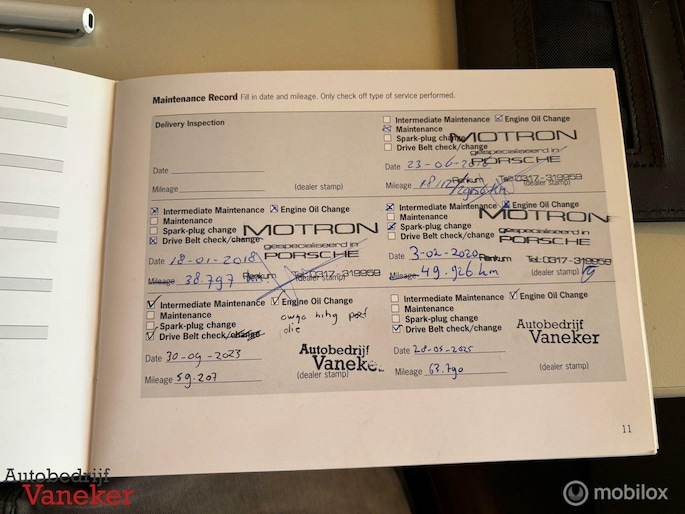 Maintenance Record Fill in date and mileage. Only check off type of service performed.
Delivery Inspection
Date
Mileage
(dealer stamp)
Intermediate Maintenance Engine Oil Change
Maintenance
Spark-plug change
Drive Belt check/change
MOTRON
gespecialiseerd in
PORSCHE
Renkum Tel: 0317-319959
Date 23-06-
Mileage
(dealer stamp)
Intermediate Maintenance Engine Oil Change
Maintenance
Spark-plug change
Drive Belt check/change
MOTRON
gespecialiseerd in
PORSCHE
Renkum Tel: 0317-319959
Date 18-01-2018
Mileage 38.797 km
Intermediate Maintenance Engine Oil Change
Maintenance
Spark-plug change
Drive Belt check/change
MOTRON
gespecialiseerd in
PORSCHE
Renkum Tel: 0317-319959
Date 3-02-2020
Mileage 49.926 km
(dealer stamp)
Intermediate Maintenance Engine Oil Change
Maintenance
Spark-plug change
Drive Belt check/change
olie
Autobedrijf
Vaneker
Date 30-09-2023
Mileage 59.207
(dealer stamp)
Intermediate Maintenance Engine Oil Change
Maintenance
Spark-plug change
Drive Belt check/change
Autobedrijf
Vaneker
Date 28-05-2025
Mileage 63.790
(dealer stamp)
11
Autobedrijf
Vaneker
mobilox